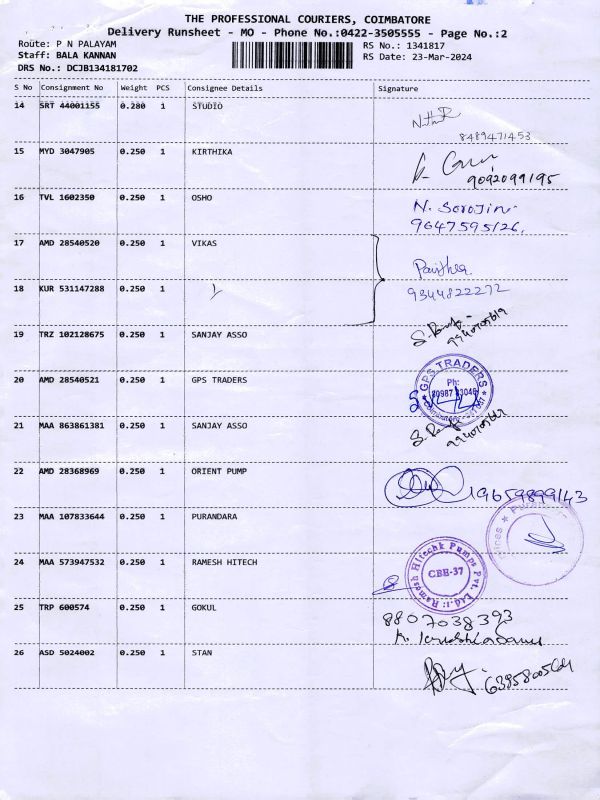 THE PROFESSIONAL COURIERS, COIMBATORE
Delivery Runsheet - MO - Phone No.:0422-3505555 - Page No.:2
Route: P N PALAYAM
RS No.: 1341817
Staff: BALA KANNAN
RS Date: 23-Mar-2024
DRS No.: DCJB134181702
S No Consignment No Weight PCS Consignee Details Signature
14 SRT 44001155 0.280 1 STUDIO
8489471453
15 MYD 3047905 0.250 1 KIRTHIKA
9092099195
16 TVL 1602350 0.250 1 OSHO N. Sorojini
9647595126.
17 AMD 28540520 0.250 1 VIKAS
18 KUR 531147288 0.250 1 9344822272
19 TRZ 102128675 0.250 1 SANJAY ASSO
20 AMD 28540521 0.250 1 GPS TRADERS GPS TRADERS
Ph:
21 MAA 863861381 0.250 1 SANJAY ASSO
22 AMD 28368969 0.250 1 ORIENT PUMP 9659899143
23 MAA 107833644 0.250 1 PURANDARA
24 MAA 573947532 0.250 1 RAMESH HITECH Ramesh Hitechk Pumps Pvt. Ltd.
CBE-37
25 TRP 600574 0.250 1 GOKUL 8807038393
26 ASD 5024002 0.250 1 STAN